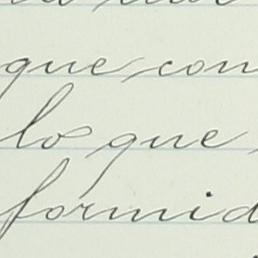 que con
lo que
formid